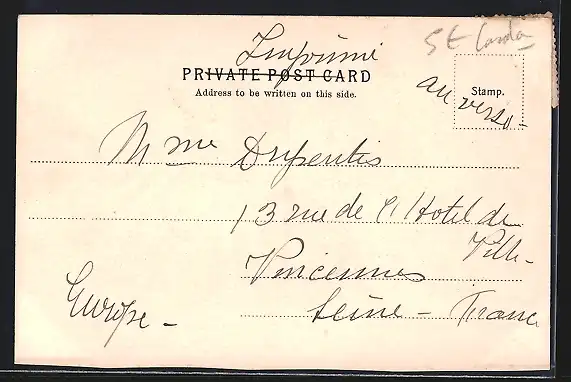 Imprimé
St Lucia
PRIVATE POST CARD
Address to be written on this side.
Stamp.
au verso -
Mme
13 rue de l'Hotel de
Ville -
Vincennes
Seine - France
Europe -